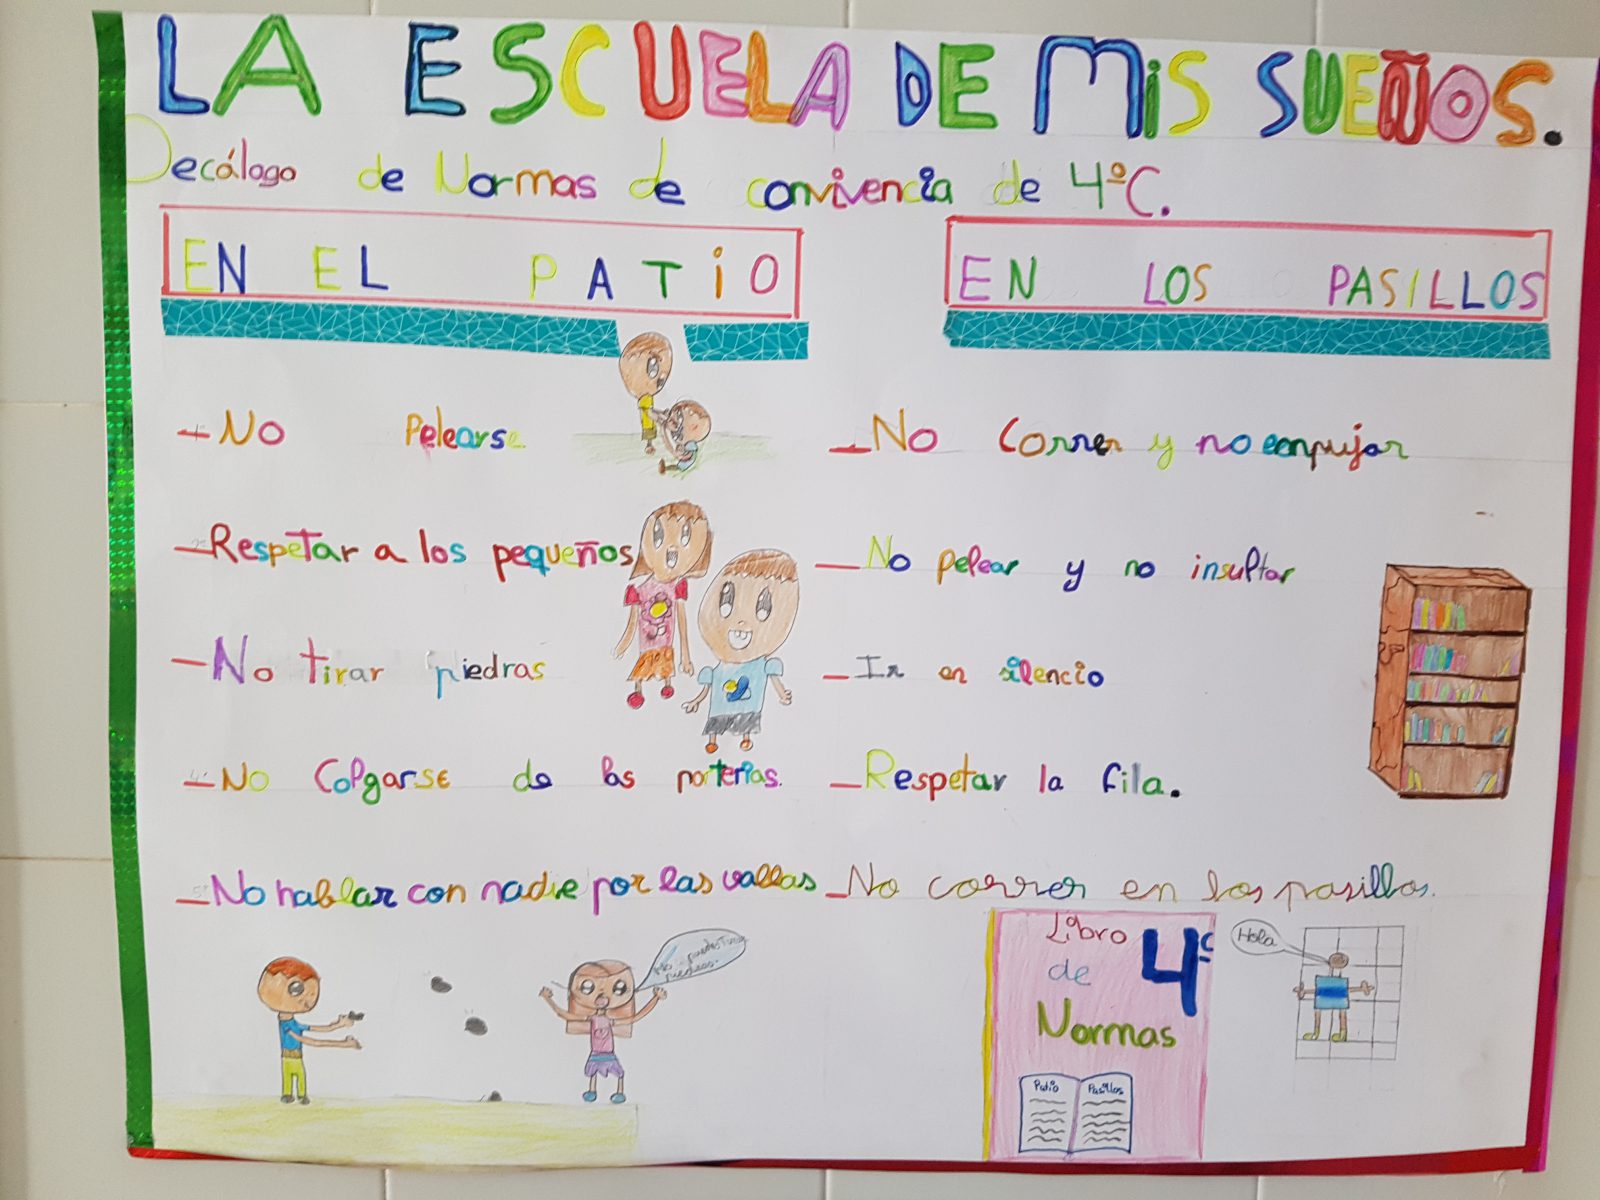 LA ESCUELA DE MiS SUEÑOS.
Decálogo de Normas de convivencia de 4ºC.
EN EL PATiO
- No Pelearse
- Respetar a los pequeños
- No tirar piedras
- No Colgarse de las porterias.
- No hablar con nadie por las vallas
No puedes tirar piedras.
EN LOS PASILLOS
- No Correr y no empujar
- No pelear y no insultar
- Ir en silencio
- Respetar la fila.
- No correr en los pasillos.
Libro
de
Normas
4ºC
Patio Pasillos
Hola